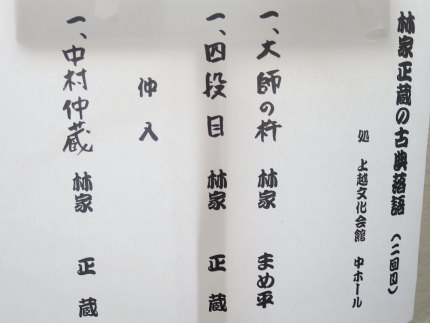 林家正蔵の古典落語（二回目）
処 上越文化会館 中ホール
一、大師の杵 林家 まめ平
一、四段目 林家 正蔵
仲入
一、中村仲蔵 林家 正蔵